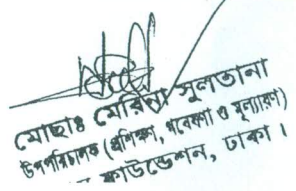 মোছাঃ মেরিনা সুলতানা
উপপরিচালক (প্রশিক্ষণ, গবেষণা ও মূল্যায়ণ)
ফাউন্ডেশন, ঢাকা।